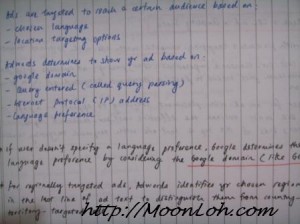 Ads are targeted to reach a certain audience based on:
- chosen language
- location targeting options
Adwords determines to show yr ad based on:
- google domain
- Query entered (called query parsing)
- Internet Protocol (IP) address
- Language preference
If user doesn't specify a language preference, Google determines the
language preference by considering the Google domain (like
For regionally targeted ads, Adwords identifies yr chosen region
in the last line of ad text to distinguish them from country
territory - targe
http://MoonLoh.com